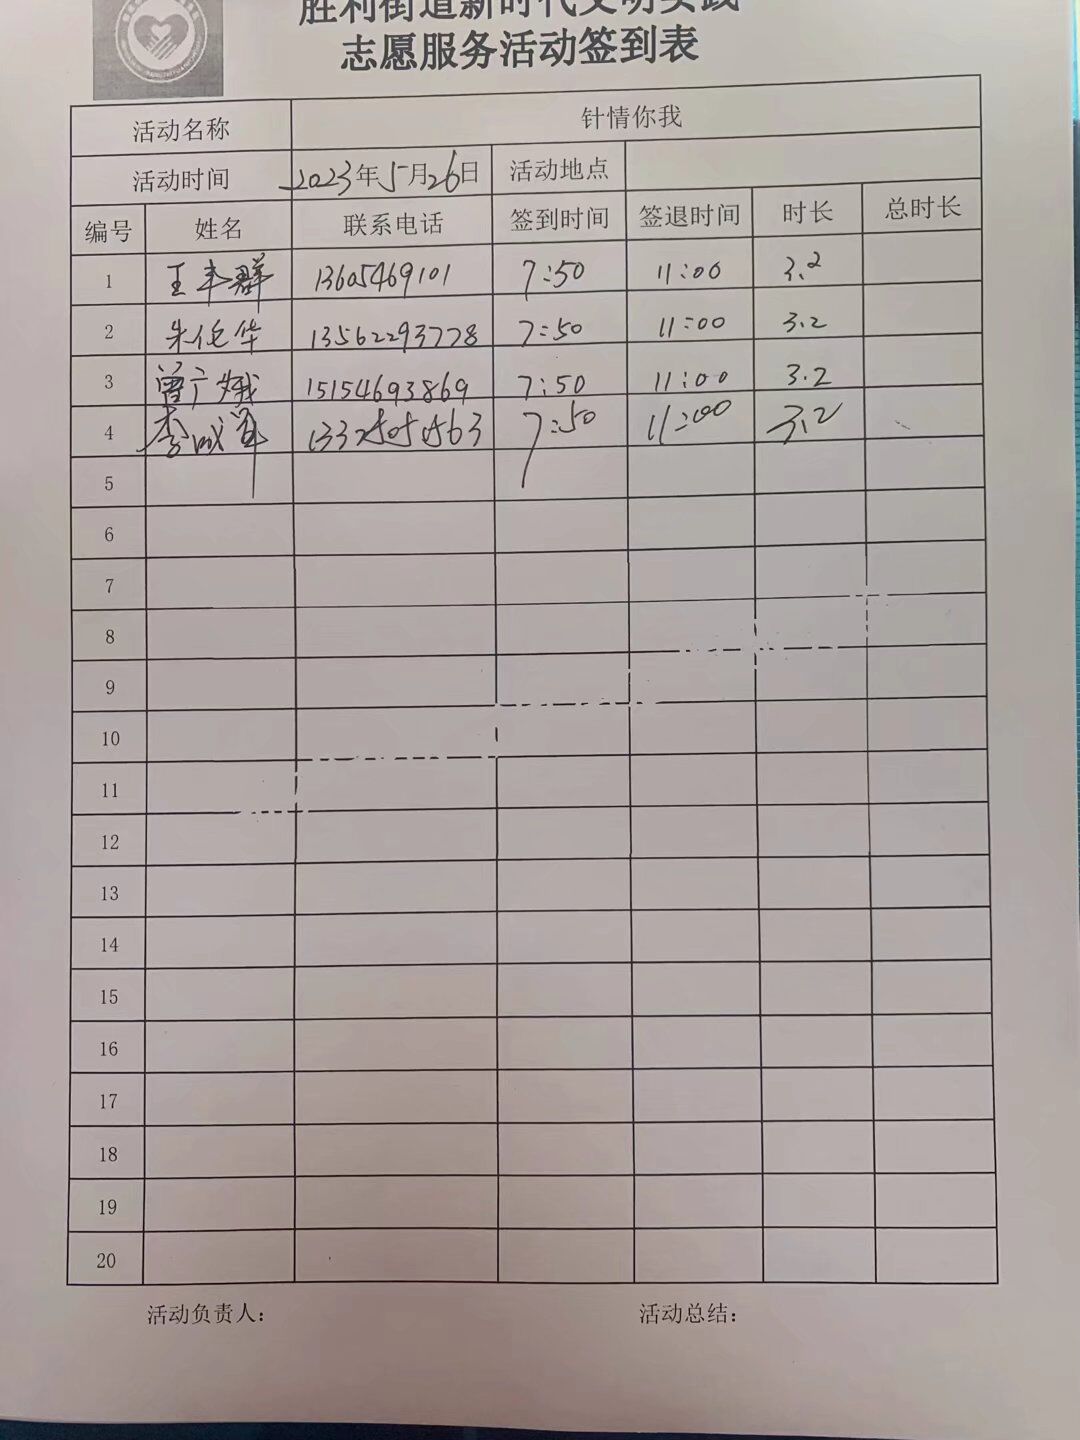 胜利街道新时代文明实践
志愿服务活动签到表
活动名称 针情你我
活动时间 2023年5月26日 活动地点
编号 姓名 联系电话 签到时间 签退时间 时长 总时长
1 王丰群 13605469101 7:50 11:00 3.2
2 朱伦华 13562293778 7:50 11:00 3.2
3 曾广娥 15154693869 7:50 11:00 3.2
4 李 7:50 11:00 3.2
5
6
7
8
9
10
11
12
13
14
15
16
17
18
19
20
活动负责人: 活动总结: